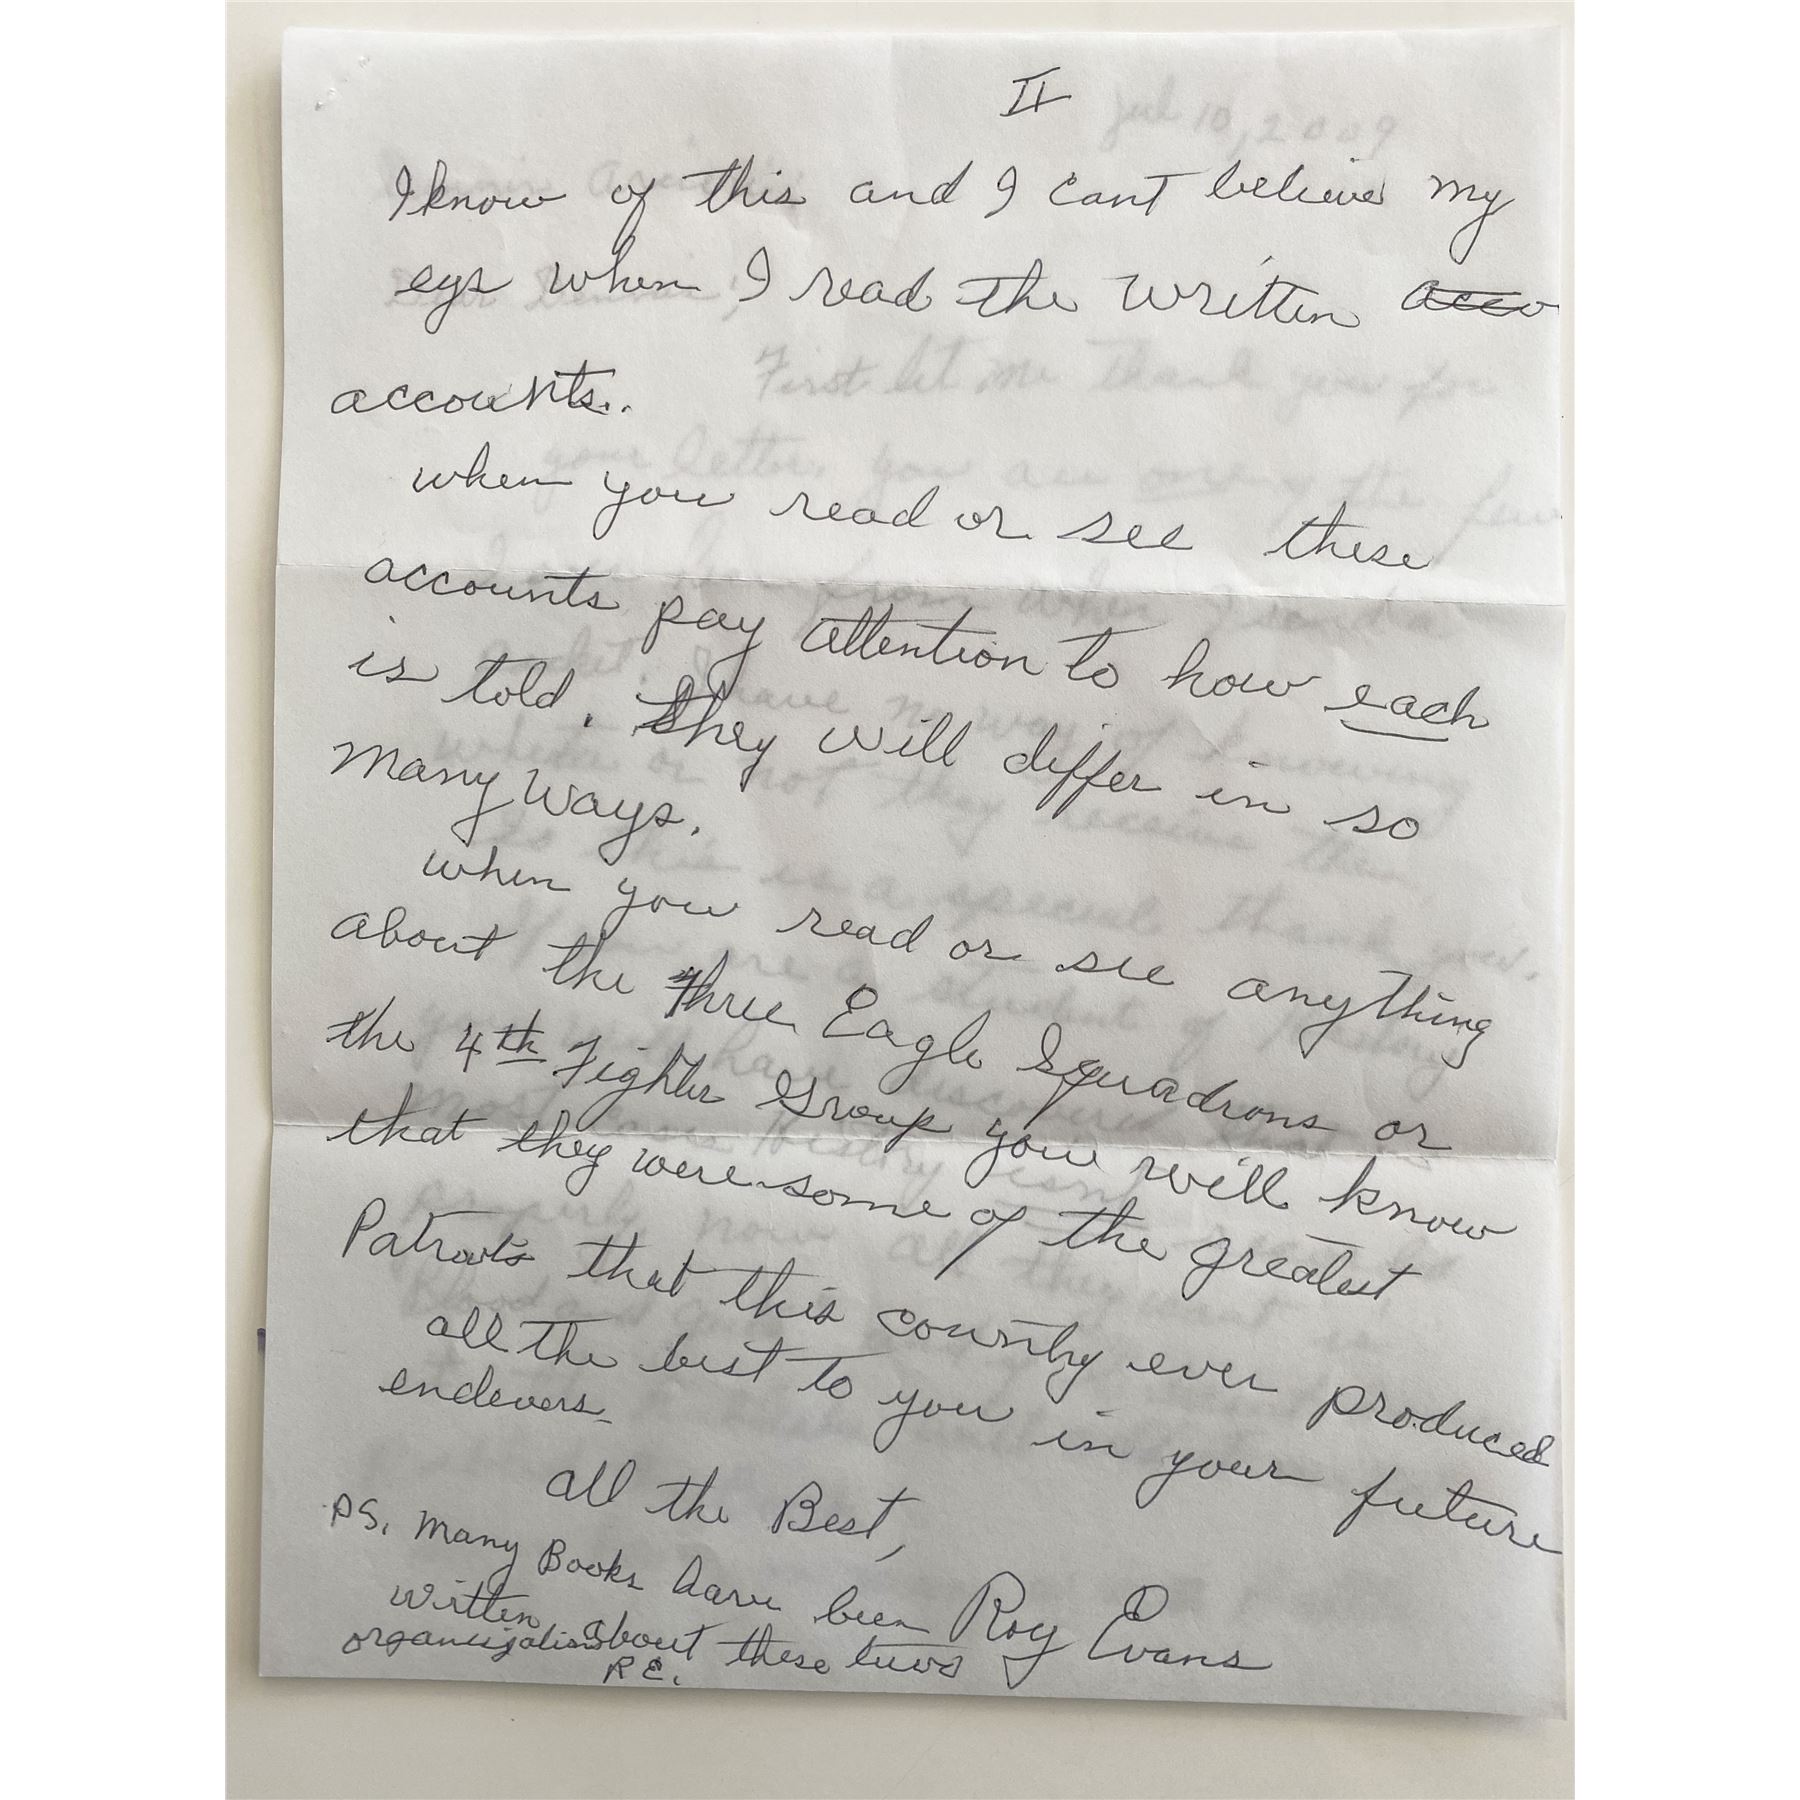 II
Jul 10, 2009
I know of this and I cant believe my
eys when I read the written acco
accounts.
First let me thank you for
your letter, you are one of the few
when you read or see these
accounts pay attention to how each
is told. They will differ in so
many ways.
when you read or see anything
about the three Eagle Squadrons or
the 4th Fighter Group you will know
that they were some of the greatest
Patriots that this country ever produced
all the best to you in your future
endevers.
all the Best,
Roy Evans
PS. Many Books have been
written about these two
organizations
R E.